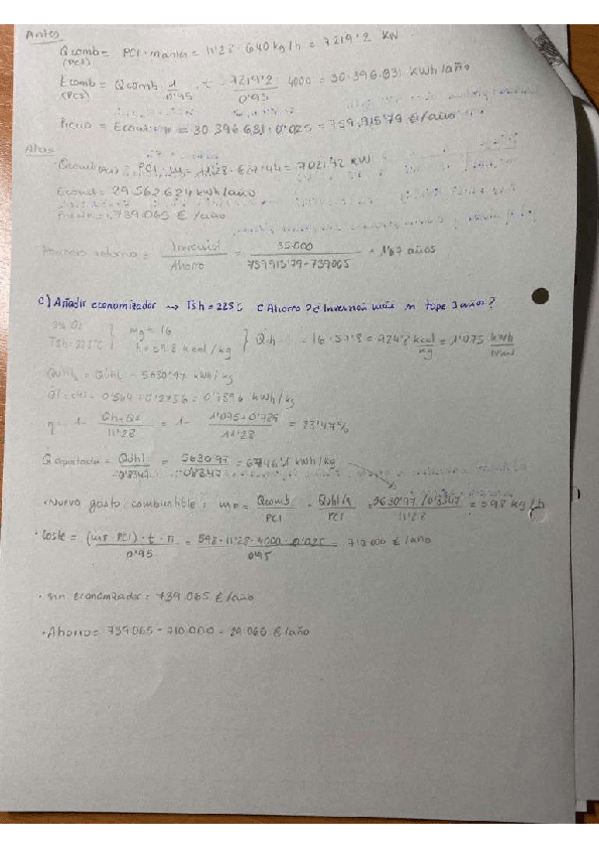 Antes
Qcomb = PCI · mantes = 11'28 · 640 kg/h = 7219'2 KW
(PCI)
Ecomb = Qcomb · 1/0'95 · t = 7219'2/0'95 · 4000 = 30.396.631 KWh/año
(PCS)
Precio = Ecomb · n = 30.396.631 · 0'025 = 759.915'79 €/año
PCI · = 11'28 · 622'44 = 7021'12 KW
Ecomb = 29.562.624 kWh/año
= 739.065 € /año
retorno = Inversión/Ahorro = 35.000/759915'79 - 739065 = 1'67 años
c) Añadir economizador → Tsh = 225°C ¿Ahorro? ¿d Inversión máx en tope 3 años?
mg = 16
h = 57'8 kcal/kg } Qh = 16 · 57'8 = 924'8 kcal/kg = 1'075 kWh
Qútil = Qútil = 5630'97 kWh/kg
= 0'564 + 0'2256 = 0'7896 kWh/kg
η = 1 - Qh+Qs/11'28 = 1 - 1'075+0'789/11'28 = 83'47%
Q aportada = Qútil/0'8347 = 5630'97/0'8347 = 6746'1 kWh/kg
· Nuevo gasto combustible: mF = Qcomb/PCI = Qútil/η/PCI = 5630'97/0'8347/11'28 = 598 kg/h
· Coste = (mF · PCI) · t · n/0'95 = 598 · 11'28 · 4000 · 0'025/0'95 = 710.000 €/año
· sin economizador = 739.065 €/año
· Ahorro = 739.065 - 710.000 = 29.065 €/año